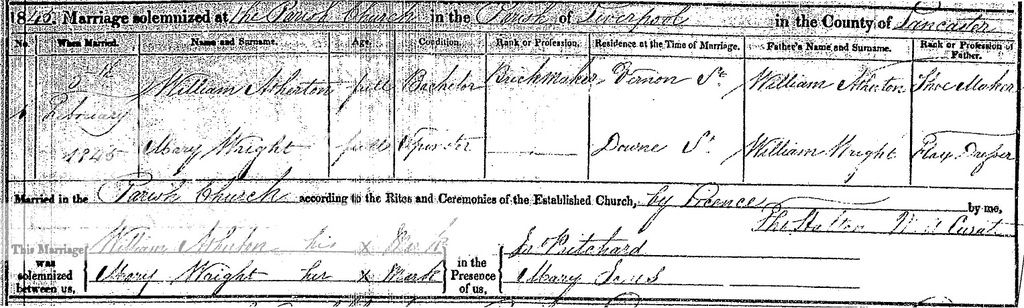 1845. Marriage solemnized at the Parish Church in the Parish of Liverpool in the County of Lancaster
No. When Married. Name and Surname. Age. Condition. Rank or Profession. Residence at the Time of Marriage. Father's Name and Surname. Rank or Profession of Father.
2nd William Atherton full Bachelor Brickmaker Vernon St William Atherton Shoe Maker
February
1845 Mary Wright full Spinster Downe St William Wright Flax Dresser
Married in the Parish Church according to the Rites and Ceremonies of the Established Church, by Licence by me,
Thos Halton Curat
This Marriage was solemnized between us, William Atherton his x Mark in the Presence of us, Jn Pritchard
Mary Wright her x Mark Mary